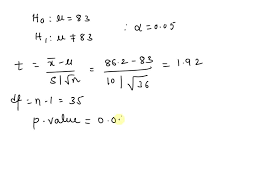 H₀ : μ = 83
H₁ : μ ≠ 83 ∴ α = 0.05
t = x̄ - μ / s|√n = 86.2 - 83 / 10|√36 = 1.92
df = n - 1 = 35
p. value = 0.0